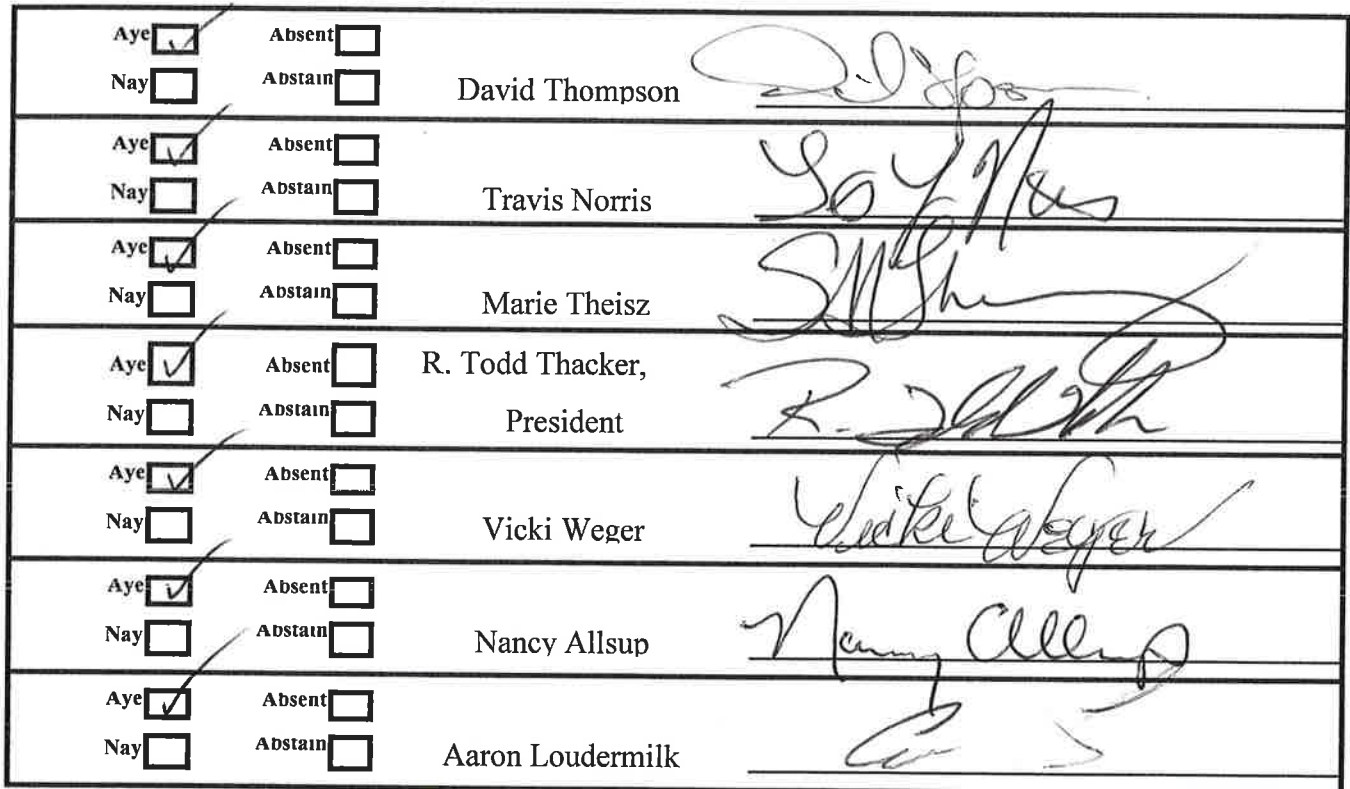 Aye Absent
Nay Abstain David Thompson
Aye Absent
Nay Abstain Travis Norris
Aye Absent
Nay Abstain Marie Theisz
Aye Absent R. Todd Thacker,
Nay Abstain President
Aye Absent
Nay Abstain Vicki Weger Vicki Weger
Aye Absent
Nay Abstain Nancy Allsup Nancy Allsup
Aye Absent
Nay Abstain Aaron Loudermilk